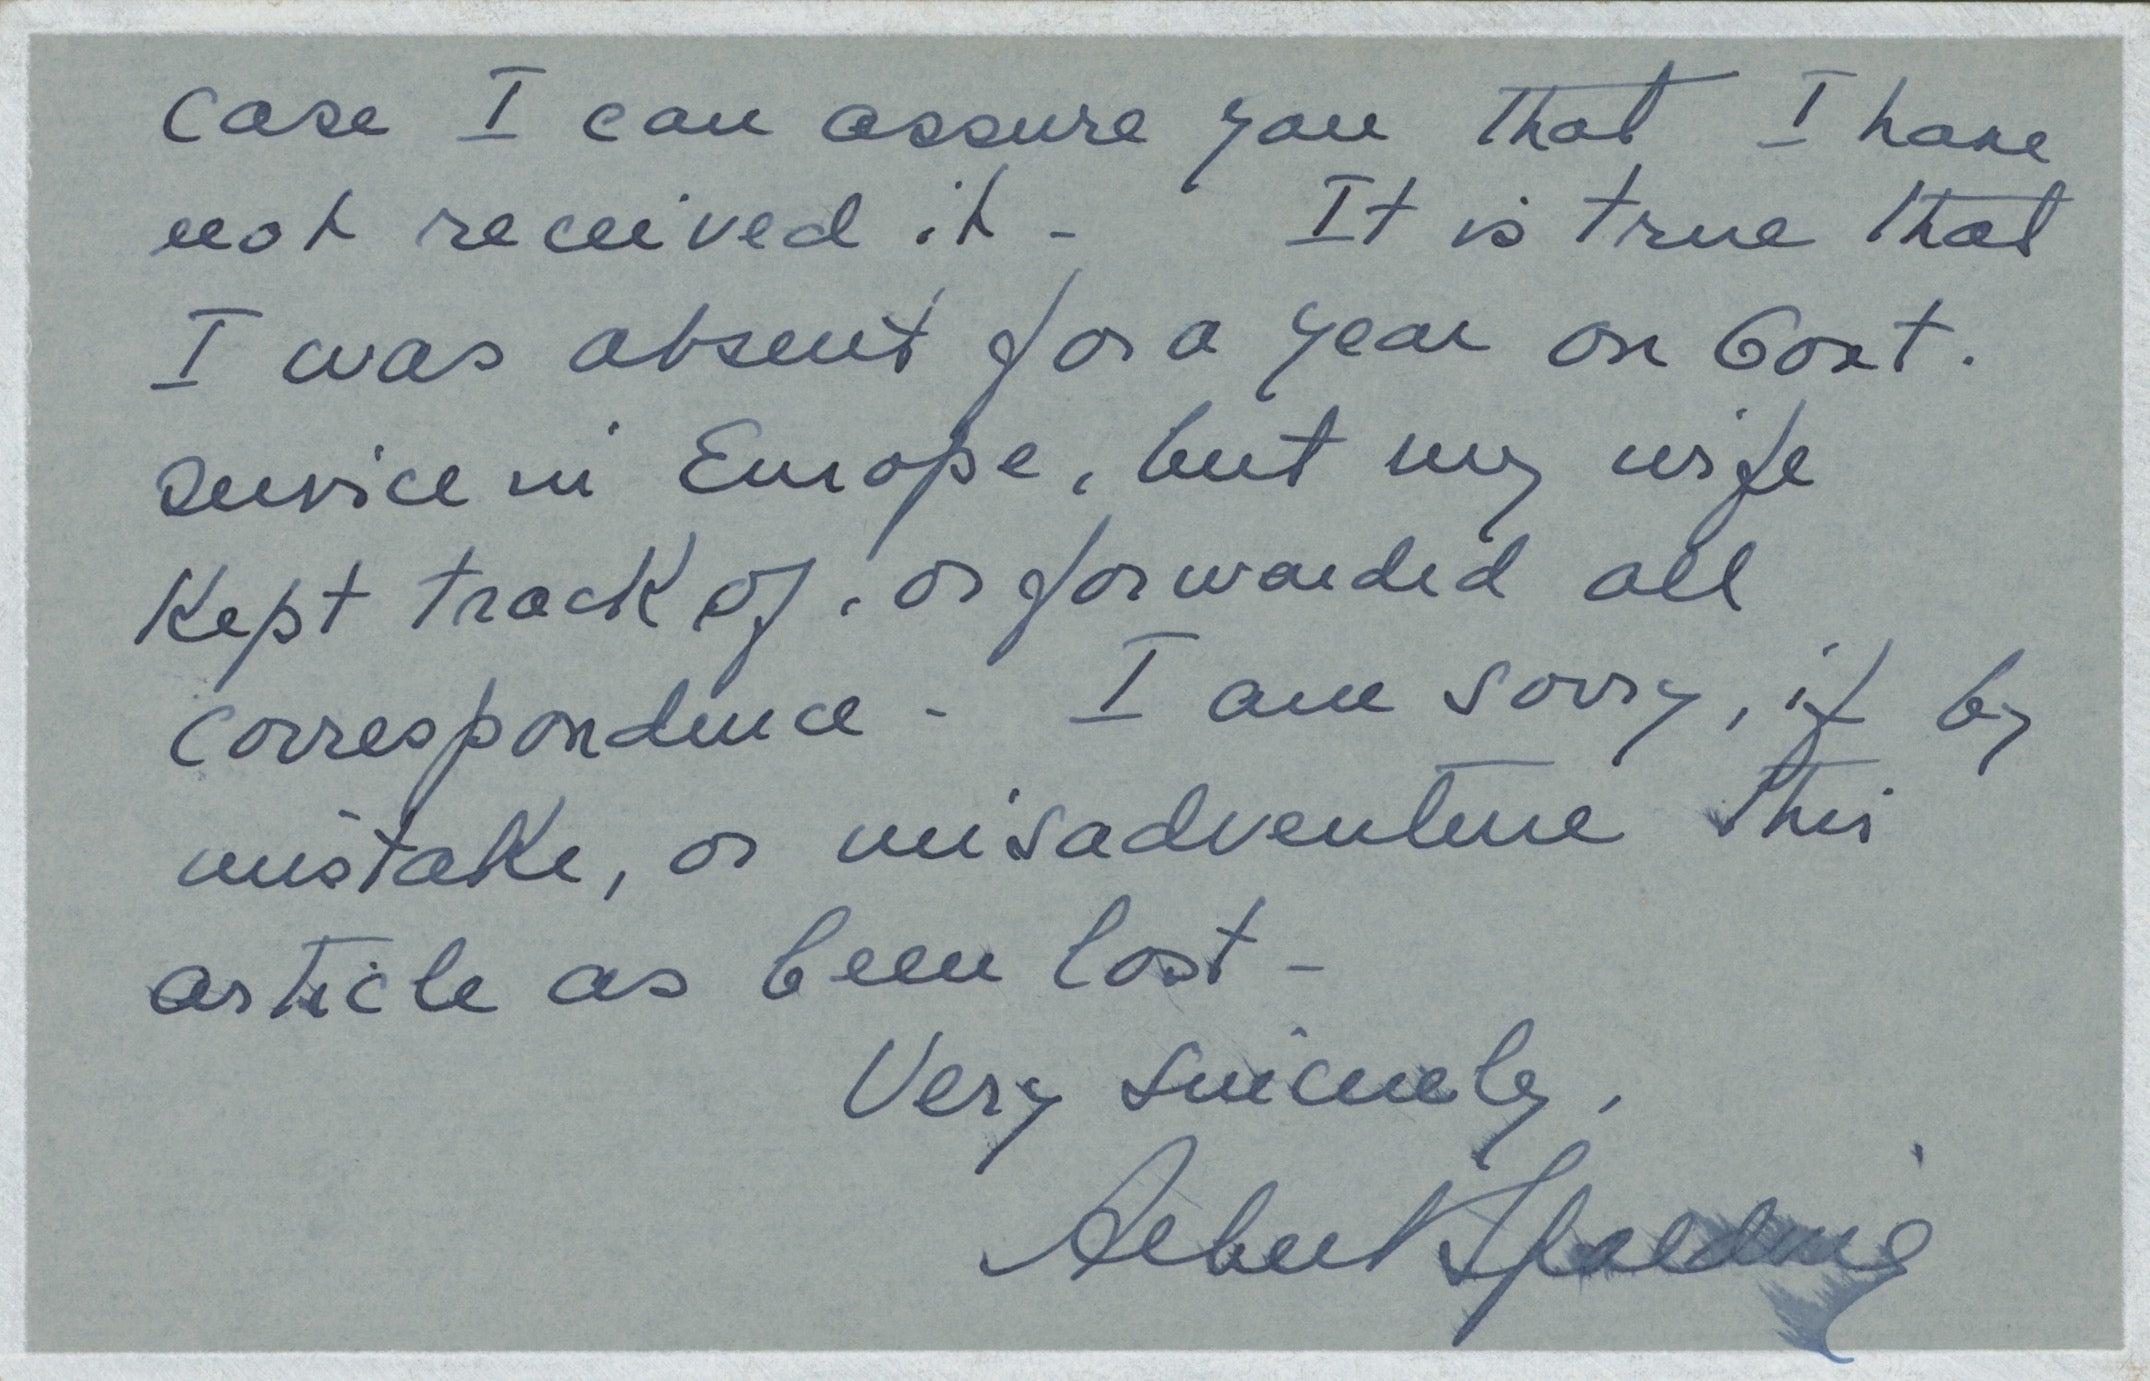 case I can assure you that I have
not received it - It is true that
I was absent for a year on Govt.
service in Europe, but my wife
kept track of, or forwarded all
correspondence - I am sorry, if by
mistake, or misadventure this
article as been lost -
Very sincerely,
Albert Spalding